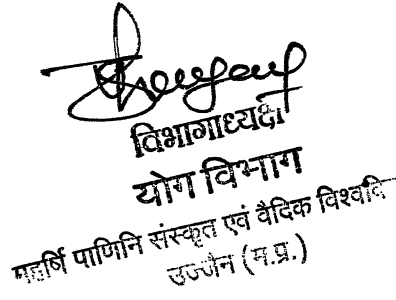 विभागाध्यक्ष
योग विभाग
महर्षि पाणिनि संस्कृत एवं वैदिक विश्ववि
उज्जैन (म.प्र.)